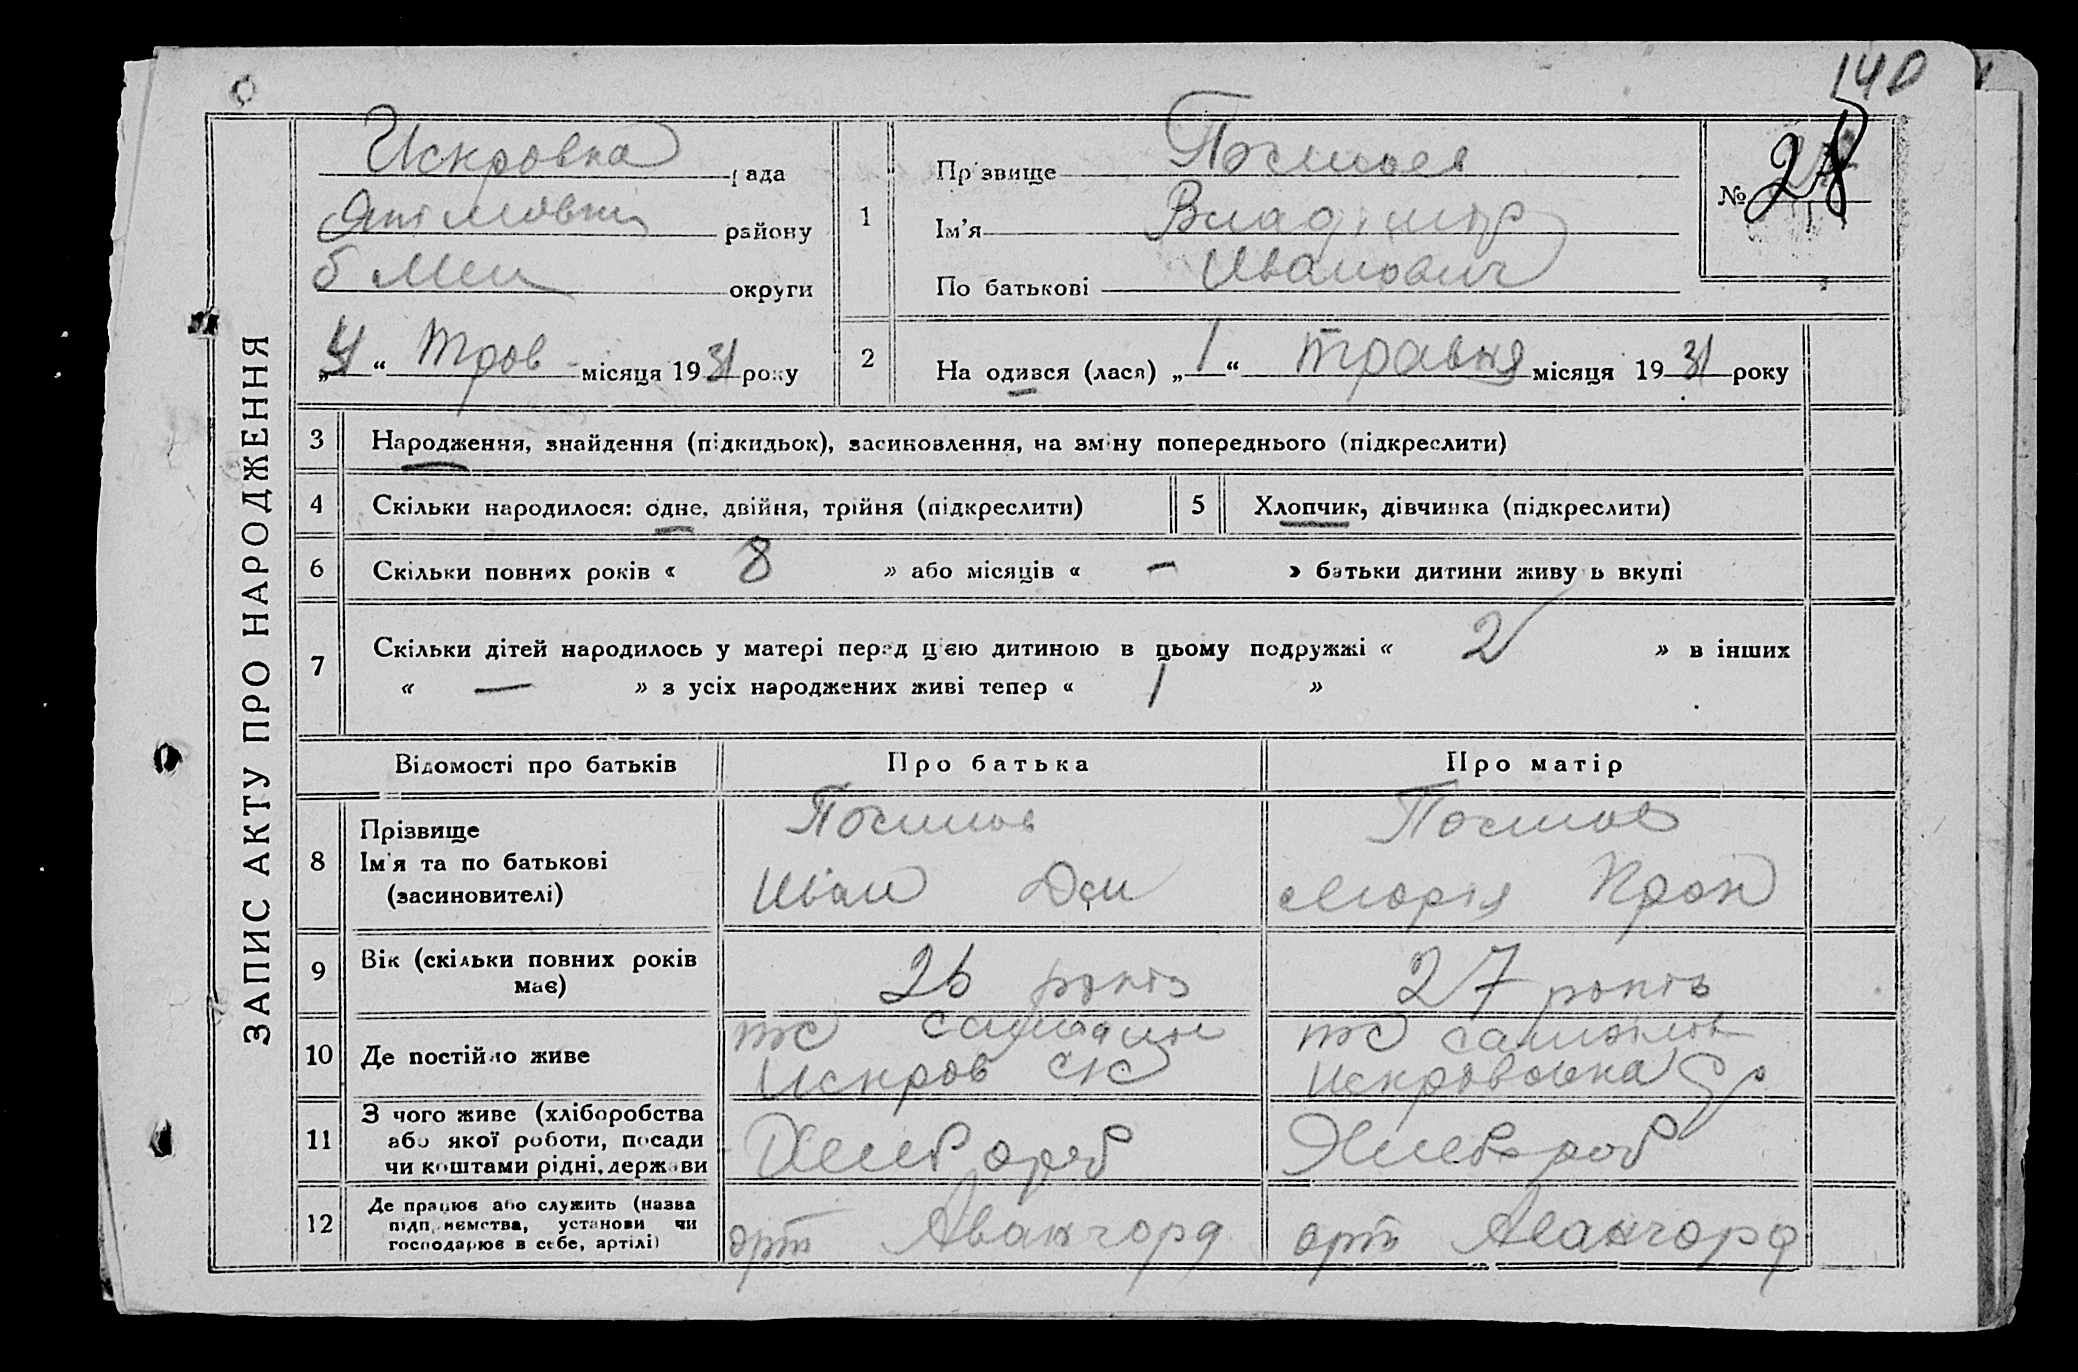 140
ЗАПИС АКТУ ПРО НАРОДЖЕННЯ
Искровка рада
района
б Мел округи
„4“ трав місяця 1931 року
1
Прізвище
Ім'я Владимір
По батькові Иванович
№ 28
2 Народився (лася) „1“ травня місяця 1931 року
3 Народження, знайдення (підкидьок), засиновлення, на зміну попереднього (підкреслити)
4 Скільки народилося: одне, двійня, трійня (підкреслити)
5 Хлопчик, дівчинка (підкреслити)
6 Скільки повних років « 8 » або місяців « – » батьки дитини живуть вкупі
7 Скільки дітей народилось у матері перед цією дитиною в цьому подружжі « 2 » в інших
« — » з усіх народжених живі тепер « 1 »
Відомості про батьків Про батька Про матір
8 Прізвище
Ім'я та по батькові
(засиновителі)
Іван Дем
Марія Прок
9 Вік (скільки повних років
має)
26 років
27 років
10 Де постійно живе
Искров
Искрововка
11 З чого живе (хліборобства
або якої роботи, посади
чи коштами рідні, держави
Хлебороб
Хлебороб
12 Де працює або служить (назва
підприємства, установи чи
господарює в себе, артілі)
арт Авангард
арт Авангард